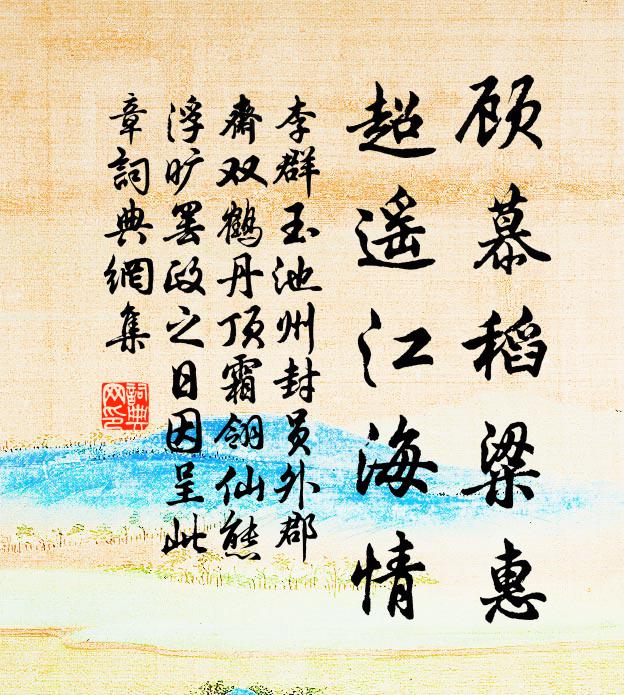 顾慕稻粱惠
超遥江海情
李群玉池州封员外郡
斋双鹤丹顶霜翎仙态
浮旷罢政之日因呈此
章詞典網集
詞典
网印